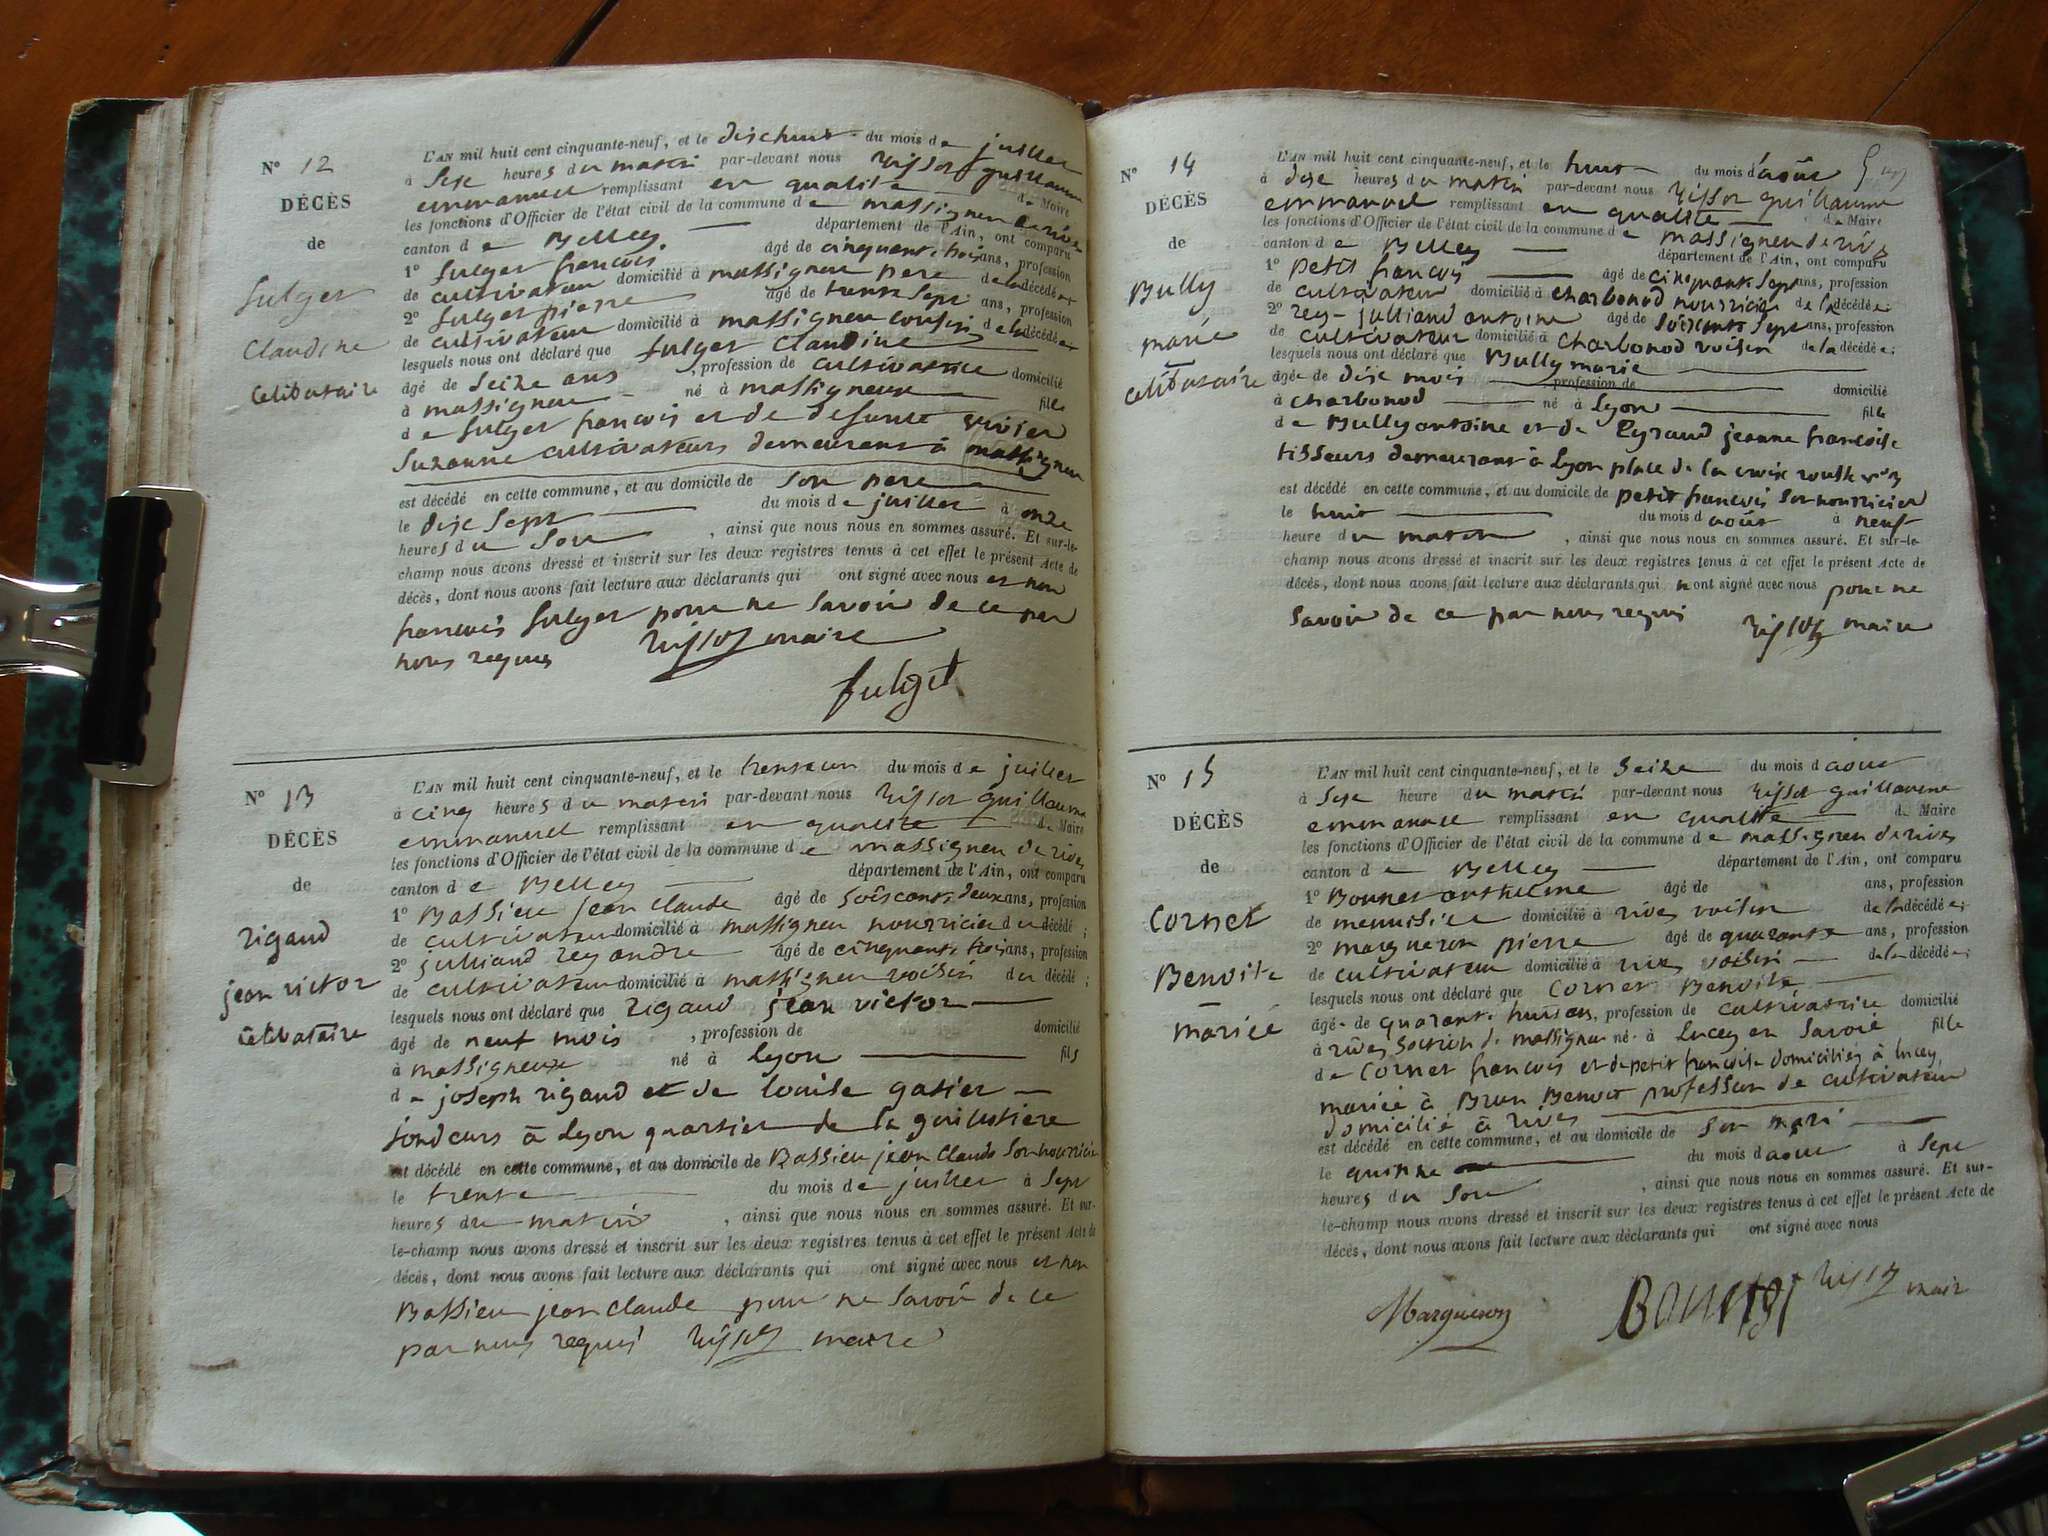 N° 12
DÉCÈS
de
fulger
Claudine
Celibataire
L'AN mil huit cent cinquante-neuf, et le dixhuit du mois de juillet
à sept heures du matin par-devant nous guillaume
emmanuel remplissant en qualité de Maire
les fonctions d'Officier de l'état civil de la commune de massigneu de rives
canton de Belley département de l'Ain, ont comparu
1° fulger francois âgé de cinquante trois ans, profession
de cultivateur domicilié à massigneu pere de la décédée
2° fulger pierre âgé de trente sept ans, profession
de cultivateur domicilié à massigneu cousin de la décédée
lesquels nous ont déclaré que fulger Claudine
âgé de seize ans, profession de cultivatrice domicilié
à massigneu né à massigneux fille
de fulger francois et de defunte vivier
Suzanne cultivateurs demeurant à massigneu
est décédé en cette commune, et au domicile de son pere
le dix sept du mois de juillet à onze
heures du soir, ainsi que nous nous en sommes assuré. Et sur-le-
champ nous avons dressé et inscrit sur les deux registres tenus à cet effet le présent Acte de
décès, dont nous avons fait lecture aux déclarants qui ont signé avec nous et non
francois fulger pour ne savoir de ce par
nous requis maire
fulget
N° 13
DÉCÈS
de
rigaud
jean victor
Celibataire
L'AN mil huit cent cinquante-neuf, et le trente un du mois de juillet
à cinq heures du matin par-devant nous guillaume
emmanuel remplissant en qualité de Maire
les fonctions d'Officier de l'état civil de la commune de massigneu de rives
canton de Belley département de l'Ain, ont comparu
1° Bassieu jean claude âgé de soiscante deux ans, profession
de cultivateur domicilié à massigneu nourricier du décédé ;
2° julliand rey andre âgé de cinquante trois ans, profession
de cultivateur domicilié à massigneu voisin du décédé ;
lesquels nous ont déclaré que rigaud jean victor
âgé de neuf mois, profession de domicilié
à massigneux né à lyon fils
de joseph rigaud et de louise gatier
fondeurs à lyon quartier de la
est décédé en cette commune, et au domicile de Bassieu jean claude son nourricier
le trente du mois de juillet à sept
heures du matin, ainsi que nous nous en sommes assuré. Et sur-
le-champ nous avons dressé et inscrit sur les deux registres tenus à cet effet le présent Acte de
décès, dont nous avons fait lecture aux déclarants qui ont signé avec nous et non
Bassieu jean claude pour ne savoir de ce
par nous requis maire
N° 14
DÉCÈS
de
Bully
marie
celibataire
L'AN mil huit cent cinquante-neuf, et le huit du mois d'août
à dix heures du matin par-devant nous guillaume
emmanuel remplissant en qualité de Maire
les fonctions d'Officier de l'état civil de la commune de massigneu de rives
canton de Belley département de l'Ain, ont comparu
1° petit francois âgé de cinquante sept ans, profession
de cultivateur domicilié à charbonod nourricier de la décédée
2° rey-julliand antoine âgé de soiscante sept ans, profession
de cultivateur domicilié à charbonod voisin de la décédée ;
lesquels nous ont déclaré que Bully marie
âgée de dix mois profession de domicilié
à charbonod né à lyon fille
de Bully antoine et de jeanne francoise
tisseurs demeurant à lyon place de la croix
est décédé en cette commune, et au domicile de petit francois son nourricier
le huit du mois d'août à neuf
heure du matin, ainsi que nous nous en sommes assuré. Et sur-le-
champ nous avons dressé et inscrit sur les deux registres tenus à cet effet le présent Acte de
décès, dont nous avons fait lecture aux déclarants qui n'ont signé avec nous pour ne
savoir de ce par nous requis maire
N° 15
DÉCÈS
de
Cornet
Benoite
mariée
L'AN mil huit cent cinquante-neuf, et le seize du mois d'aout
à sept heure du matin par-devant nous guillaume
emmanuel remplissant en qualité de Maire
les fonctions d'Officier de l'état civil de la commune de massigneu de rives
canton de Belley département de l'Ain, ont comparu
1° Bonnet anthelme âgé de ans, profession
de menuisier domicilié à rives voisin de la décédée ;
2° margueron pierre âgé de quarante ans, profession
de cultivateur domicilié à rives voisin de la décédée ;
lesquels nous ont déclaré que Cornet Benoite
âgée de quarante huit ans, profession de cultivatrice domicilié
à rives section de massigneu né à lucey en Savoie fille
de Cornet francois et de petit francoise domiciliés à lucey,
mariée à Brun Benoit profession de cultivateur
domicilié à rives
est décédé en cette commune, et au domicile de son mari
le quinze du mois d'aout à sept
heures du soir, ainsi que nous nous en sommes assuré. Et sur-
le-champ nous avons dressé et inscrit sur les deux registres tenus à cet effet le présent Acte de
décès, dont nous avons fait lecture aux déclarants qui ont signé avec nous
Margueron Bonnet